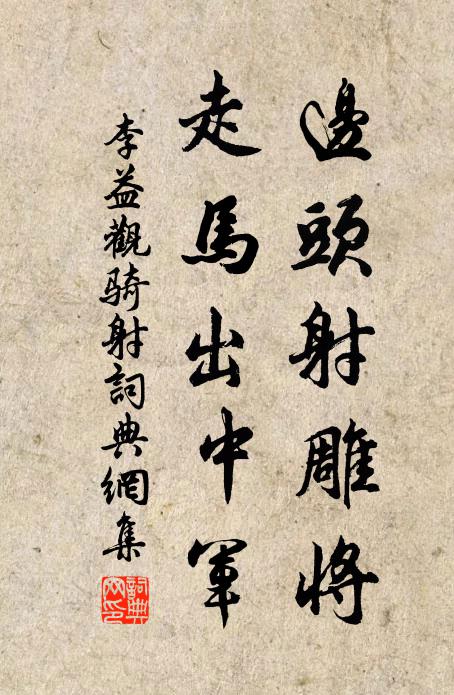 邊頭射雕將
走馬出中軍
李益觀骑射詞典網集
詞典網印